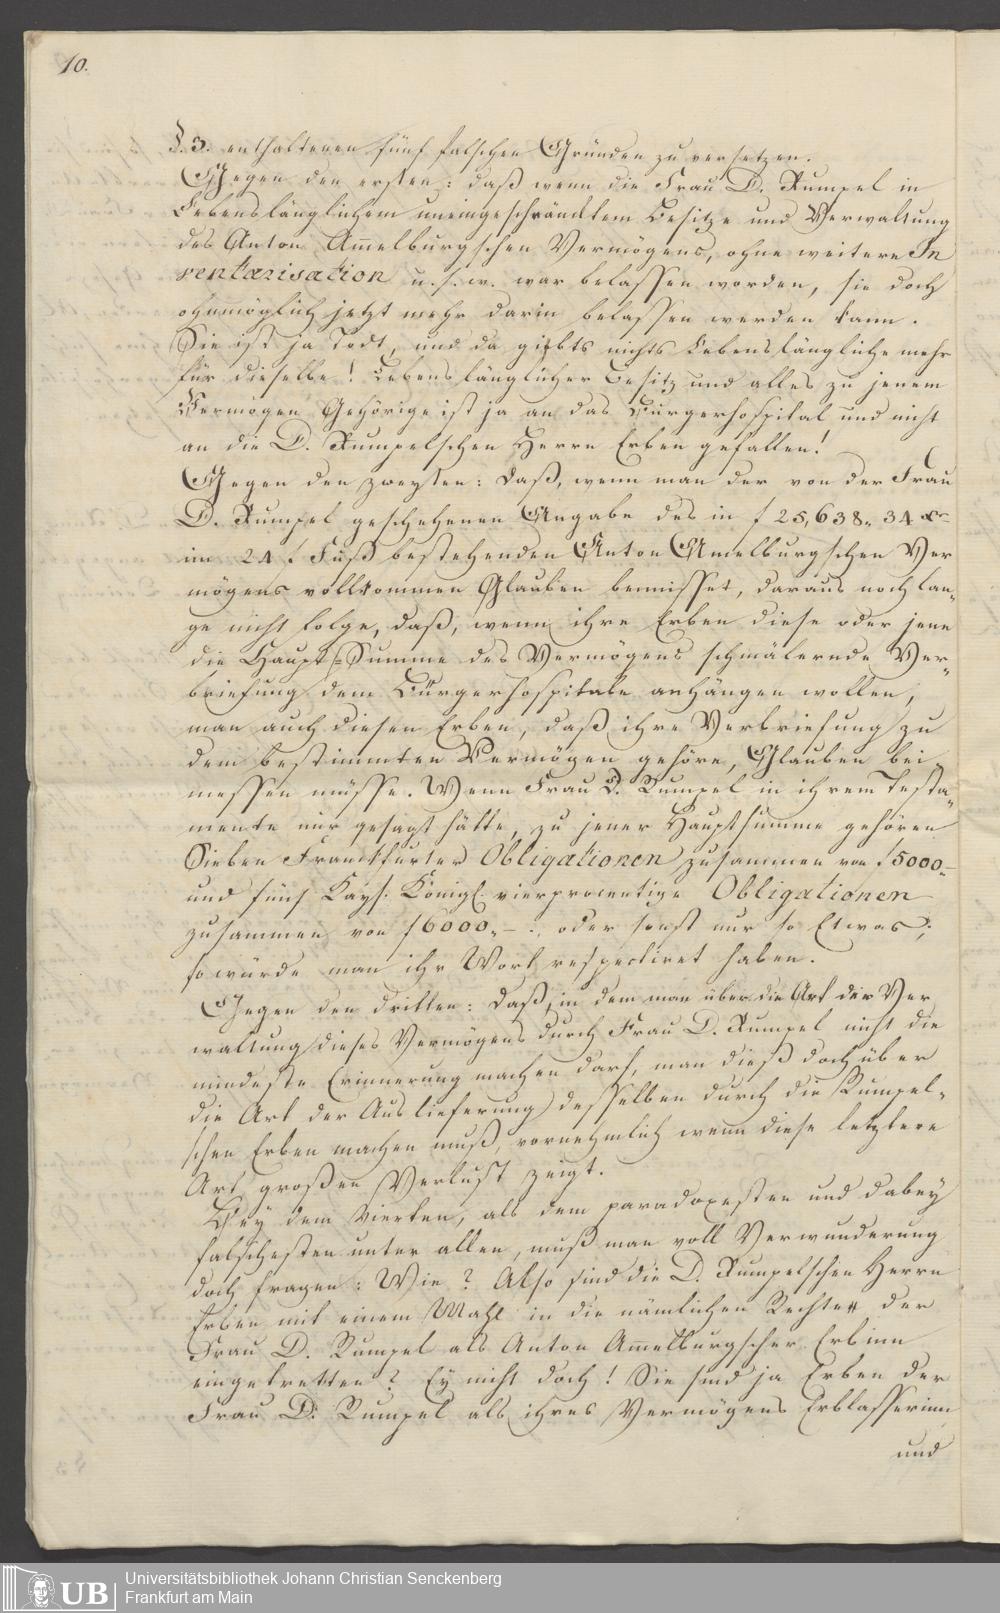 10.
§. 3. enthaltenen fünf falschen Gründen zu versetzen.
Gegen den ersten: daß wenn die Frau D. Rumpel in
Lebenslänglichem uneingeschränktem Besitze und Verwaltung
des Anton Am̅elburgschen Vermögens, ohne weitere In
ventarisation u. s. w. war belassen worden, sie doch
ohnmöglich jetzt mehr darin belassen werden kann.
Sie ist ja Todt, und da giebts nichts Lebenslängliche mehr
für dieselbe! Lebenslänglicher Besitz und alles zu jenem
Vermogen Gehörige ist ja an das Burgerhospital und nicht
an die D. Rumpelschen Herrn Erben gefallen!
Gegen den zweyten: Daß, wenn man der von der Frau
D. Rumpel geschehenen Angabe des in f 25,638„ 34 xr
im 24 f Fuß bestehenden Anton Amelburgschen Ver
mögens vollkommen Glauben beimisset, daraus noch lan„
ge nicht folge, daß, wenn ihre Erben diese oder jene
die Haupt=Summe des Vermögens schmälernde Ver„
briefung dem Bürgerhospitale anhängen wollen,
man auch diesen Erben, daß ihre Verbriefung zu
dem bestimmten Vermögen gehöre, Glauben bei„
messen müsse. Wenn Frau D. Rumpel in ihrem Testa„
mente nur gesagt hätte, zu jener Hauptsumme gehören
Sieben Franckfurter Obligationen zusammen von f 5000„–
und fünf Kays. Königl. vierprocentige Obligationen
zusammen von f 6000„ – ., oder sonst nur so Etwas;
so würde man ihr Wort respectiret haben.
Gegen den dritten: Daß, in dem man über die Art der Ver
waltung dieses Vermögens durch Frau D. Rumpel nicht die
mindeste Erinnerung machen darf, man dieß doch über
die Art der Auslieferung desselben durch die Rumpel„
schen Erben machen muß, vornehmlich wenn diese letztere
Art großen Verlust zeigt.
Bey dem Vierten, als dem paradoxesten und dabey
falschesten unter allen, muß man voll Verwunderung
doch fragen: Wie? Also sind die D. Rumpelschen Herrn
Erben mit einem Mahl in die nämlichen Rechte der
Frau D. Rumpel als Anton Am̅elburgscher Erbinn
eingetretten? Ey nicht doch! Sie sind ja Erben der
Frau D. Rumpel als ihres Vermögens Erblasserinn
und
UB Universitätsbibliothek Johann Christian Senckenberg
Frankfurt am Main